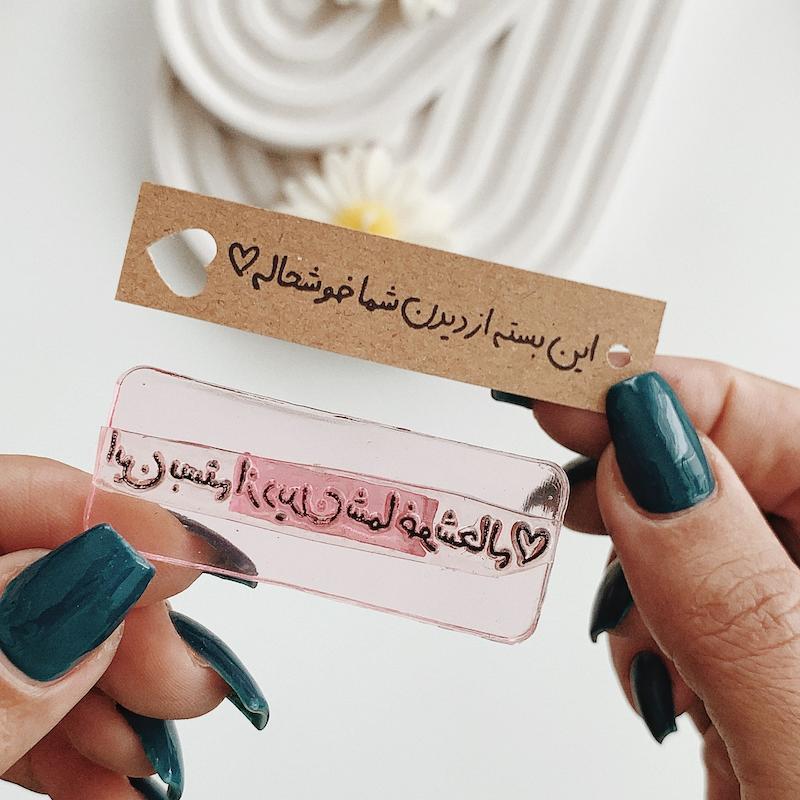 این بسته از دیدن شما خوشحاله♡